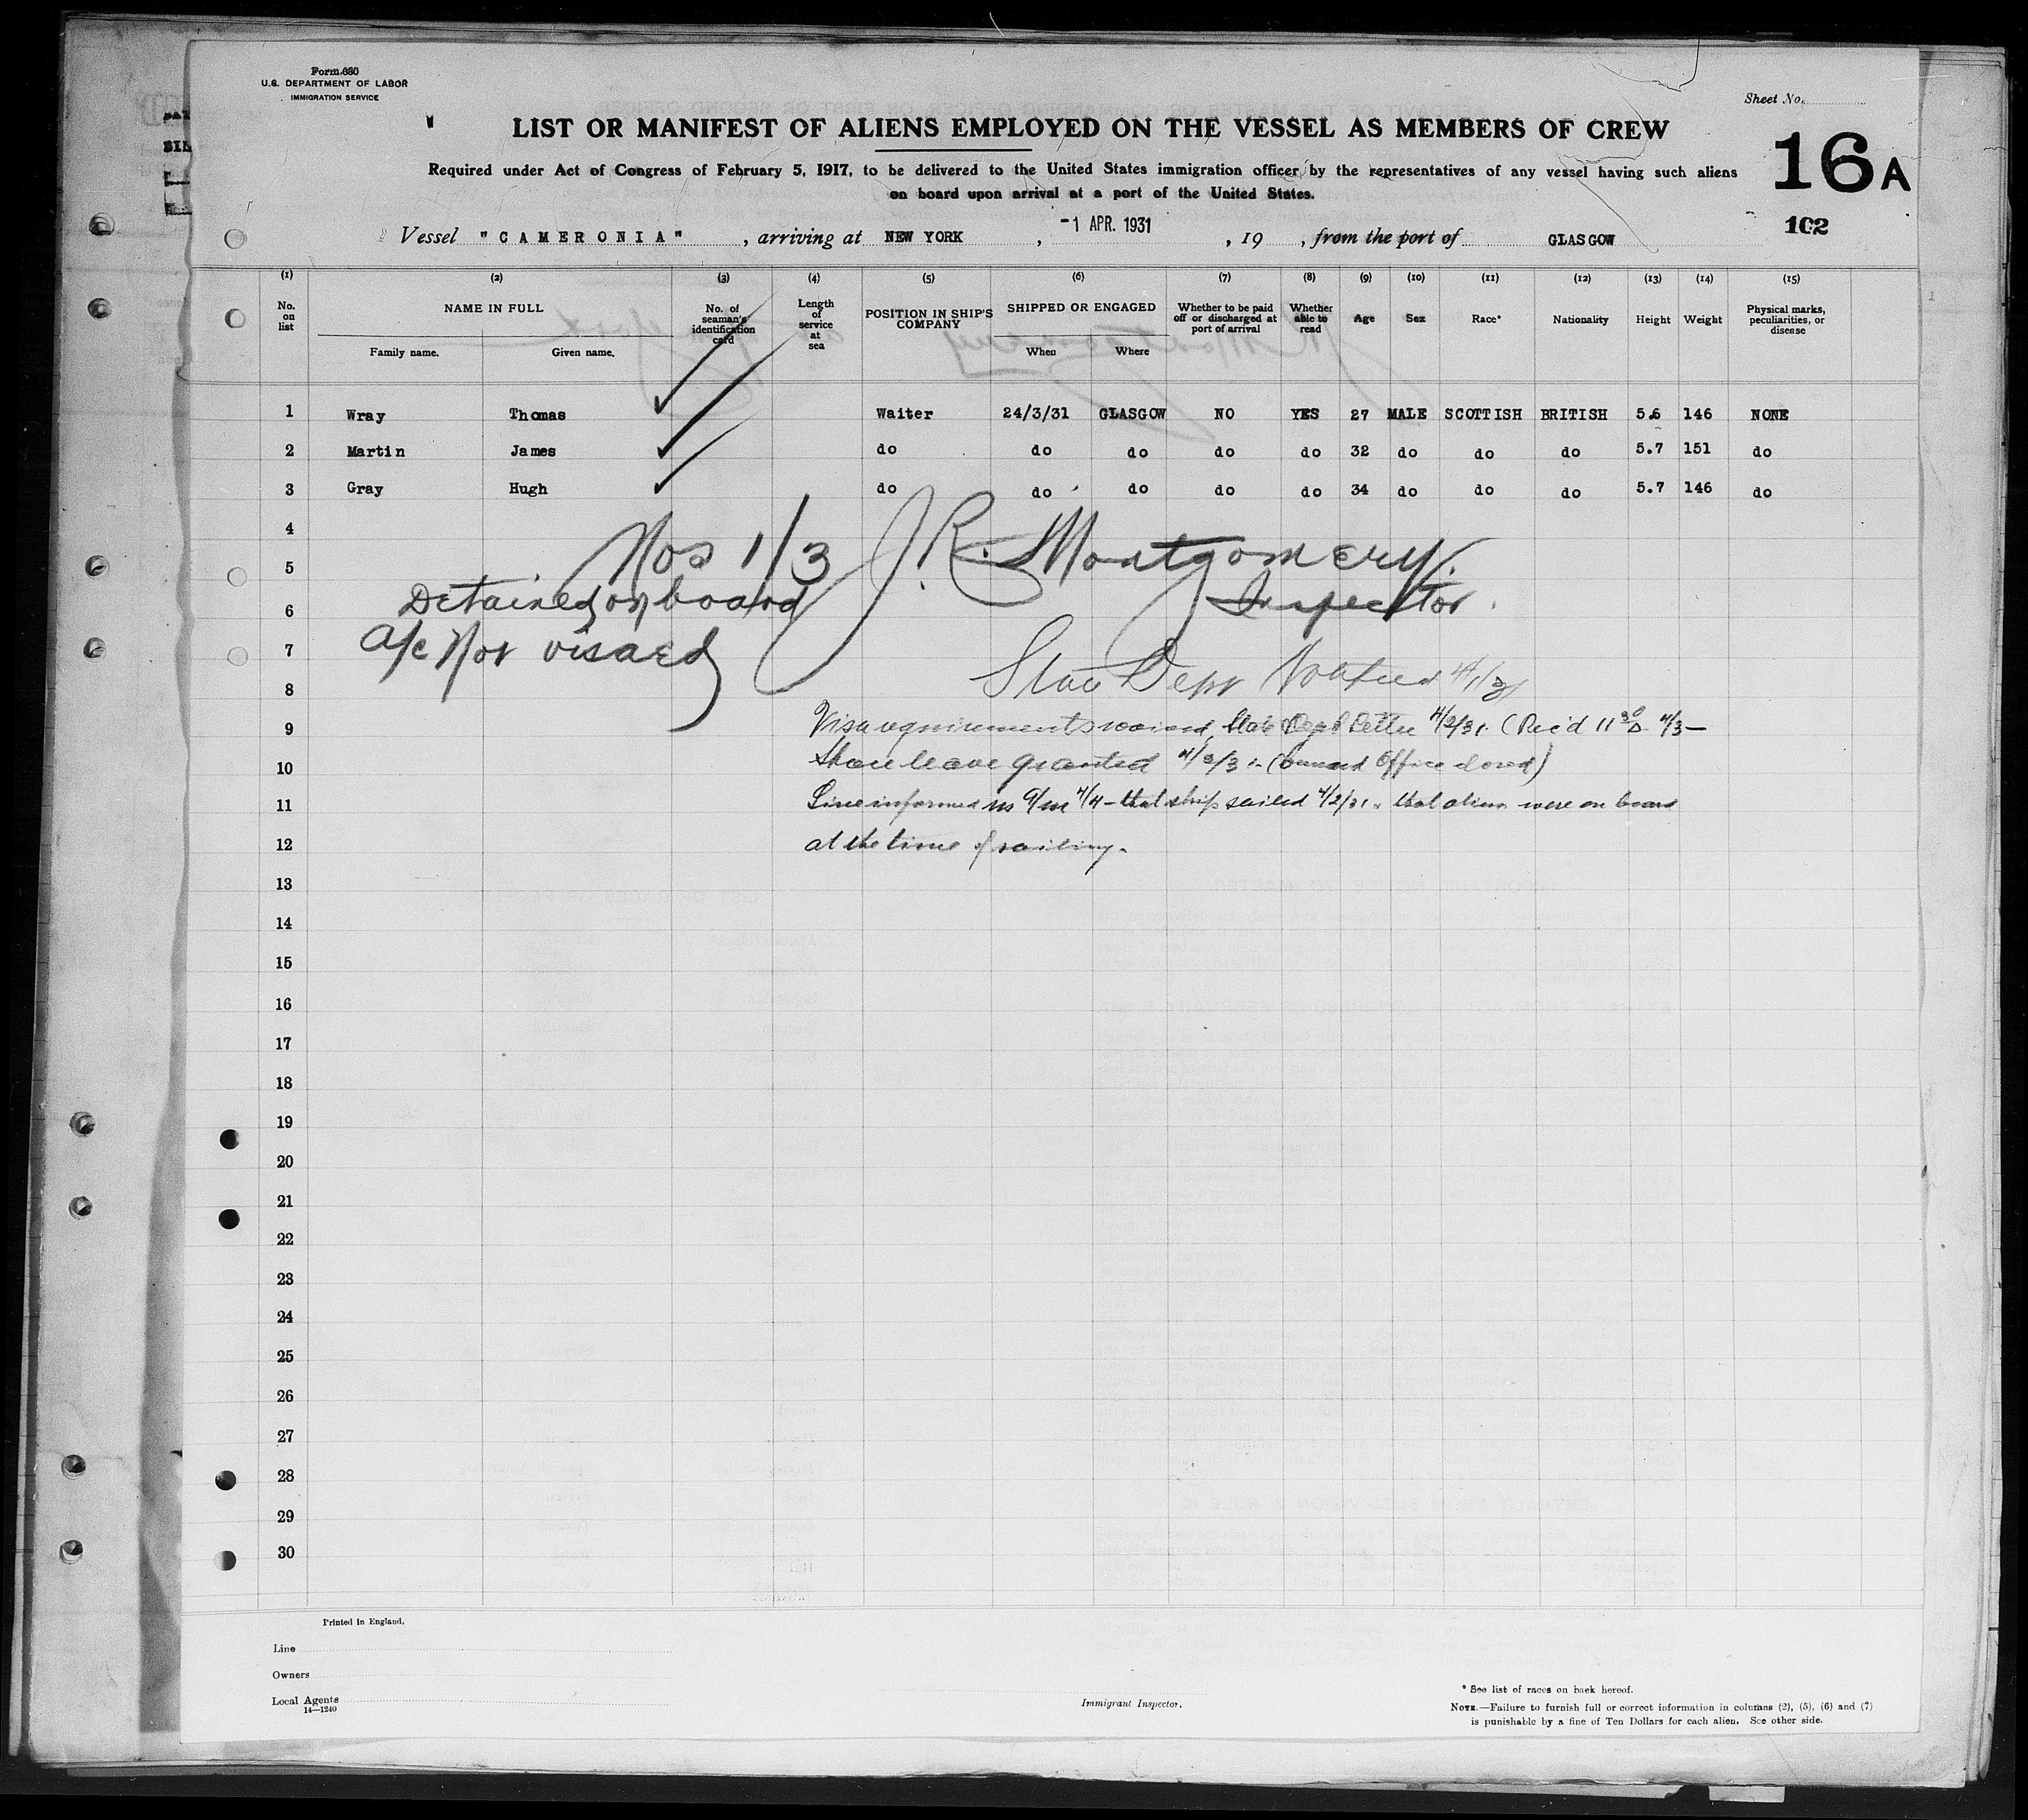 Form 680
U.S. DEPARTMENT OF LABOR
IMMIGRATION SERVICE
Sheet No.
LIST OR MANIFEST OF ALIENS EMPLOYED ON THE VESSEL AS MEMBERS OF CREW
16A
Required under Act of Congress of February 5, 1917, to be delivered to the United States immigration officer by the representatives of any vessel having such aliens
on board upon arrival at a port of the United States.
102
Vessel "CAMERONIA", arriving at NEW YORK, -1 APR. 1931, 19 , from the port of GLASGOW
(1) (2) (3) (4) (5) (6) (7) (8) (9) (10) (11) (12) (13) (14) (15)
No. on list NAME IN FULL Family name. Given name. No. of seaman's identification card Length of service at sea POSITION IN SHIP'S COMPANY SHIPPED OR ENGAGED When Where Whether to be paid off or discharged at port of arrival Whether able to read Age Sex Race* Nationality Height Weight Physical marks, peculiarities, or disease
1 Wray Thomas Waiter 24/3/31 GLASGOW NO YES 27 MALE SCOTTISH BRITISH 5.6 146 NONE
2 Martin James do do do do do 32 do do do 5.7 151 do
3 Gray Hugh do do do do do 34 do do do 5.7 146 do
4
Nos 1/3 J.R. Montgomery.
5
Detained on board Inspector.
6
a/c Not visaed
7
State Dept Notified 4/1/31
8
Visa requirements waived, State Dept Letter 4/2/31. (Rec'd 11 30 4/3-
9
Shore leave granted 4/3/31. (Cunard Office closed)
10
Line informed us 4/4 - that ship sailed 4/2/31 & that aliens were on board
11
at the time of sailing.
12
13
14
15
16
17
18
19
20
21
22
23
24
25
26
27
28
29
30
Printed in England.
Line
Owners
Local Agents
14—1240
Immigrant Inspector.
* See list of races on back hereof.
NOTE.—Failure to furnish full or correct information in columns (2), (5), (6) and (7)
is punishable by a fine of Ten Dollars for each alien. See other side.